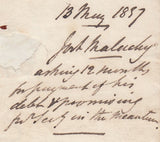 13 May 1857
Jos Malachy
asking 12 months
for payment of his
debt & promising
in the meantime